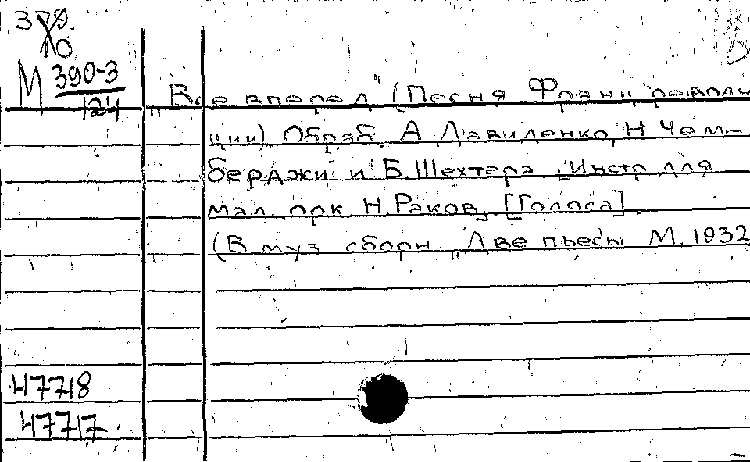 М 390-3
124
„Все вперед" (Песня Франц. револю-
ции) Обраб. А. Давиденко, Н. Чем-
берджи и Б. Шехтера. Инстр. для
мал. орк. Н. Раков. [Голоса]
(В муз. сборн. „Две пьесы М. 1932
47718
47717